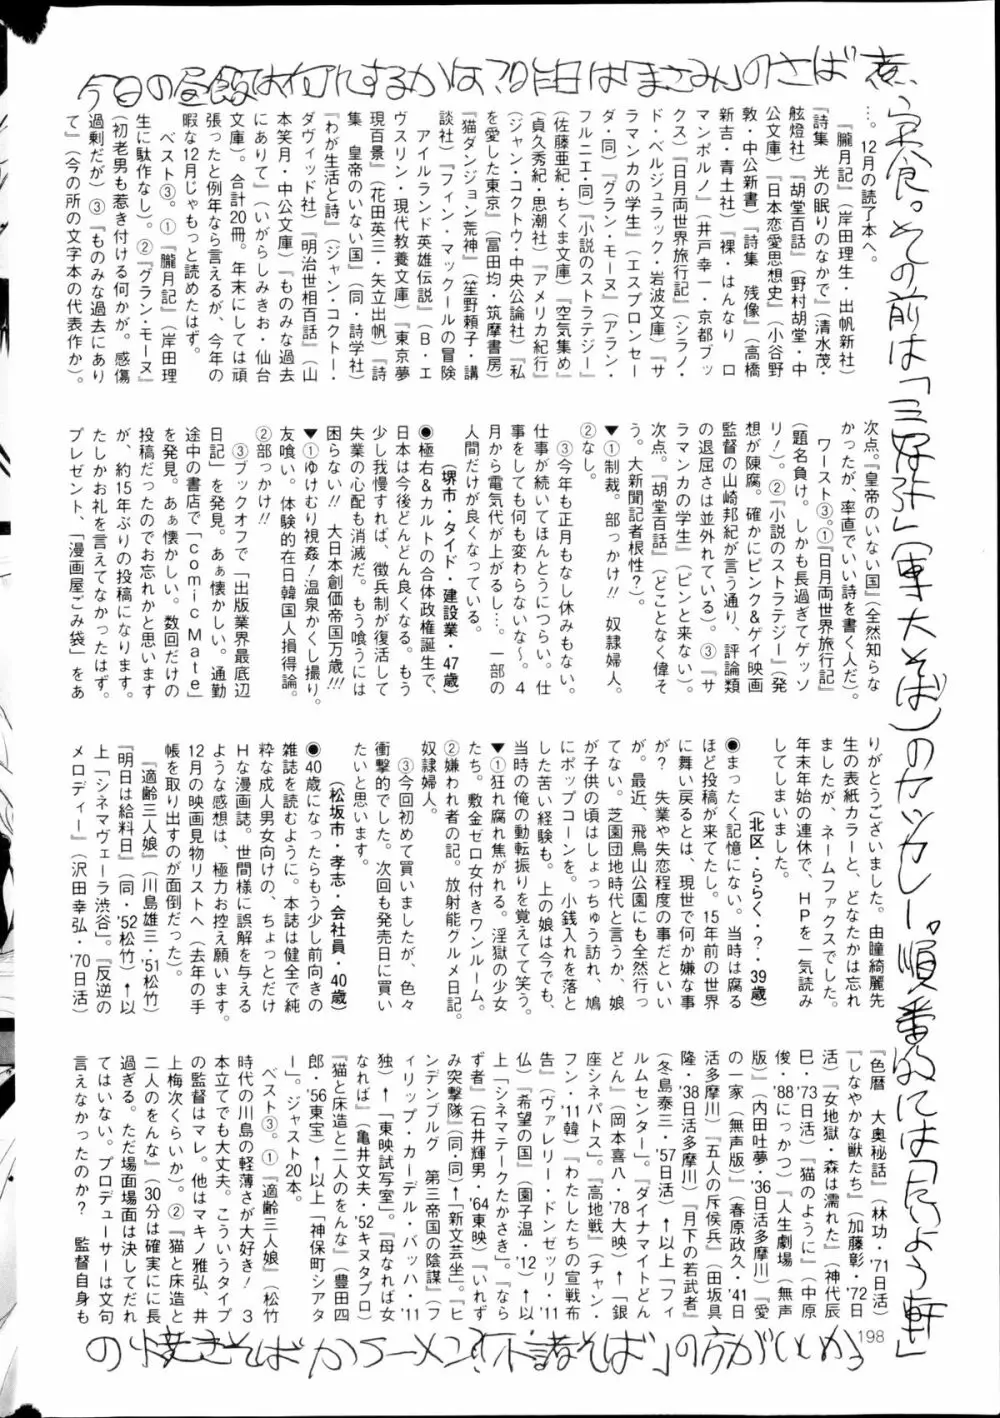 今日の昼飯は何にするかな？昨日は「まさみ」のさば煮
定食。その前は
のカツカレー。順番的には
の焼きそばかラーメン？
の方がいいかな
…。12月の読了本へ。
『朧月記』（岸田理生・出帆新社）
『詩集　光の眠りのなかで』（清水茂・
舷燈社）『胡堂百話』（野村胡堂・中
公文庫）『日本恋愛思想史』（小谷野
敦・中公新書）『詩集　残像』（高橋
新吉・青土社）『裸・はんなり　ロ
マンポルノ』（井戸幸一・京都ブッ
クス）『日月両世界旅行記』（シラノ・
ド・ベルジュラック・岩波文庫）『サ
ラマンカの学生』（エスプロンセー
ダ・同）『グラン・モーヌ』（アラン・
フルニエ・同）『小説のストラテジー』
（佐藤亜紀・ちくま文庫）『空気集め』
（貞久秀紀・思潮社）『アメリカ紀行』
（ジャン・コクトウ・中央公論社）『私
を愛した東京』（冨田均・筑摩書房）
『猫ダンジョン荒神』（笙野頼子・講
談社）『フィン・マックールの冒険
アイルランド英雄伝説』（Ｂ・エ
ヴスリン・現代教養文庫）『東京夢
現百景』（花田英三・矢立出帆）『詩
集　皇帝のいない国』（同・詩学社）
『わが生活と詩』（ジャン・コクトー・
ダヴィッド社）『明治世相百話』（山
本笑月・中公文庫）『ものみな過去
にありて』（いがらしみきお・仙台
文庫）。合計20冊。年末にしては頑
張ったと例年なら言えるが、今年の
暇な12月じゃもっと読めたはず。
ベスト③。①『朧月記』（岸田理
生に駄作なし）。②『グラン・モーヌ』
（初老男も惹き付ける何かが。感傷
過剰だが）③『ものみな過去にあり
て』（今の所の文字本の代表作か）。
次点。『皇帝のいない国』（全然知らな
かったが、率直でいい詩を書く人だ）。
ワースト③。①『日月両世界旅行記』
（題名負け。しかも長過ぎてゲッソ
リ！）。②『小説のストラテジー』（発
想が陳腐。確かにピンク＆ゲイ映画
監督の山崎邦紀が言う通り、評論類
の退屈さは並外れている）。③『サ
ラマンカの学生』（ピンと来ない）。
次点。『胡堂百話』（どことなく偉そ
う。大新聞記者根性？）。
▼①制裁。部っかけ!!　奴隷婦人。
②なし。
③今年も正月もなし休みもない。
仕事が続いてほんとうにつらい。仕
事をしても何も変わらないな～。４
月から電気代が上がるし…。一部の
人間だけが良くなっている。
（堺市・タイド・建設業・47歳）
●極右＆カルトの合体政権誕生で、
日本は今後どんどん良くなる。もう
少し我慢すれば、徴兵制が復活して
失業の心配も消滅だ。もう喰うには
困らない!!　大日本創価帝国万歳!!!
▼①ゆけむり視姦！温泉かくし撮り。
友喰い。体験的在日韓国人損得論。
②部っかけ!!
③ブックオフで「出版業界最底辺
日記」を発見。あぁ懐かしい。通勤
途中の書店で「comic Mate」
を発見。あぁ懐かしい。数回だけの
投稿だったのでお忘れかと思います
が、約15年ぶりの投稿になります。
たしかお礼を言えてなかったはず。
プレゼント、「漫画屋ごみ袋」をあ
りがとうございました。由瞳綺麗先
生の表紙カラーと、どなたかは忘れ
ましたが、ネームファクスでした。
年末年始の連休で、ＨＰを一気読み
してしまいました。
（北区・ららく・？・39歳）
●まったく記憶にない。当時は腐る
ほど投稿が来てたし。15年前の世界
に舞い戻るとは、現世で何か嫌な事
が？　失業や失恋程度の事だといい
が。最近、飛鳥山公園にも全然行っ
てない。芝園団地時代と言うか、娘
が子供の頃はしょっちゅう訪れ、鳩
にポップコーンを。小銭入れを落と
した苦い経験も。上の娘は今でも、
当時の俺の動転振りを覚えてて笑う。
▼①狂れ腐れ焦がれる。淫獄の少女
たち。敷金ゼロ女付きワンルーム。
②嫌われ者の記。放射能グルメ日記。
奴隷婦人。
③今回初めて買いましたが、色々
衝撃的でした。次回も発売日に買い
たいと思います。
（松坂市・孝志・会社員・40歳）
●40歳になったらもう少し前向きの
雑誌を読むように。本誌は健全で純
粋な成人男女向けの、ちょっとだけ
Ｈな漫画誌。世間様に誤解を与える
ような感想は、極力お控え願います。
12月の映画見物リストへ（去年の手
帳を取り出すのが面倒だった）。
『適齢三人娘』（川島雄三・'51松竹）
『明日は給料日』（同・'52松竹）↑以
上「シネマヴェーラ渋谷」。『反逆の
メロディー』（沢田幸弘・'70日活）
『色暦　大奥秘話』（林功・'71日活）
『しなやかな獣たち』（加藤彰・'72日
活）『女地獄・森は濡れた』（神代辰
巳・'73日活）『猫のように』（中原
俊・'88にっかつ）『人生劇場（無声
版）』（内田吐夢・'36日活多摩川）『愛
の一家（無声版）』（春原政久・'41日
活多摩川）『五人の斥候兵』（田坂具
隆・'38日活多摩川）『月下の若武者』
（冬島泰三・'57日活）↑以上「フィ
ルムセンター」。『ダイナマイトどん
どん』（岡本喜八・'78大映）↑「銀
座シネパトス」。『高地戦』（チャン・
フン・'11韓）『わたしたちの宣戦布
告』（ヴァレリー・ドンゼッリ・'11
仏）『希望の国』（園子温・'12）↑以
上「シネマテークたかさき」。『なら
ず者』（石井輝男・'64東映）『いれず
み突撃隊』（同・同）↑「新文芸坐」。『ヒ
ンデンブルグ　第三帝国の陰謀』（フ
ィリップ・カーデル・バッハ・'11
独）↑「東映試写室」。『母なれば女
なれば』（亀井文夫・'52キヌタプロ）
『猫と床造と二人のをんな』（豊田四
郎・'56東宝）↑以上「神保町シアタ
ー」。ジャスト20本。
ベスト③。①『適齢三人娘』（松竹
時代の川島の軽薄さが大好き！　３
本立てでも大丈夫。こういうタイプ
の監督はマレ。他はマキノ雅弘、井
上梅次くらいか）。②『猫と床造と
二人のをんな』（30分は確実にに長
過ぎる。ただ場面場面は決してだれ
てはいない。プロデューサーは文句
言えなかったのか？　監督自身も
198